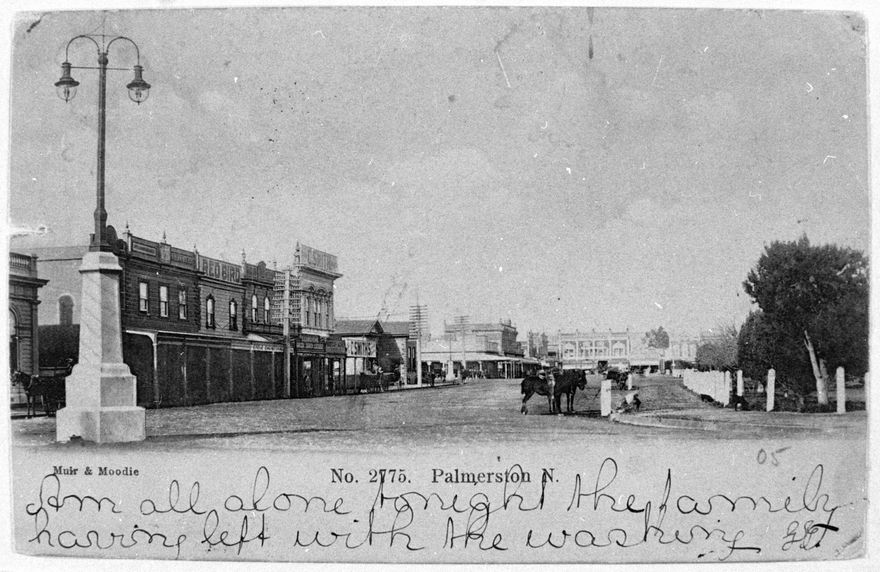 RED BIRD
05
Muir & Moodie
No. 2775. Palmerston N.
Am all alone tonight the family
having left with the washing